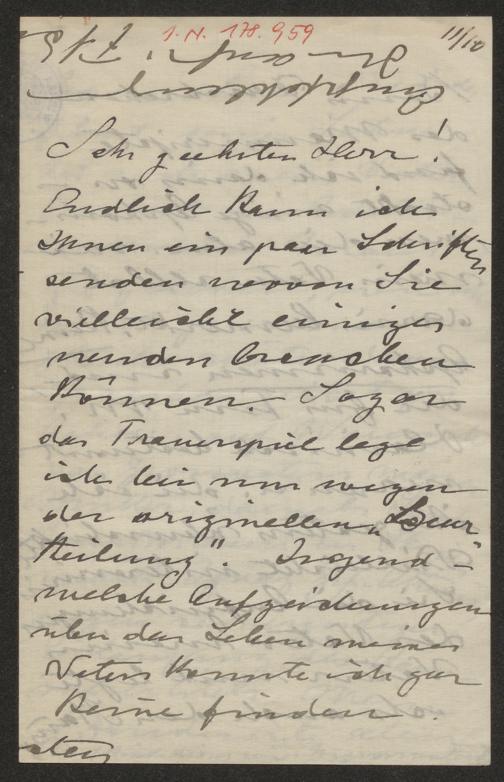 I.N. 178.959
11/10
Sehr geehrter Herr!
Endlich kann ich
Ihnen ein paar Schriften
senden wovon Sie
vielleicht einiges
werden brauchen
können. Sogar
das Trauerspiel lege
ich bei nur wegen
der originellen „Beur-
theilung". Irgend-
welche Aufzeichnungen
über das Leben meines
Vaters konnte ich gar
keine finden.